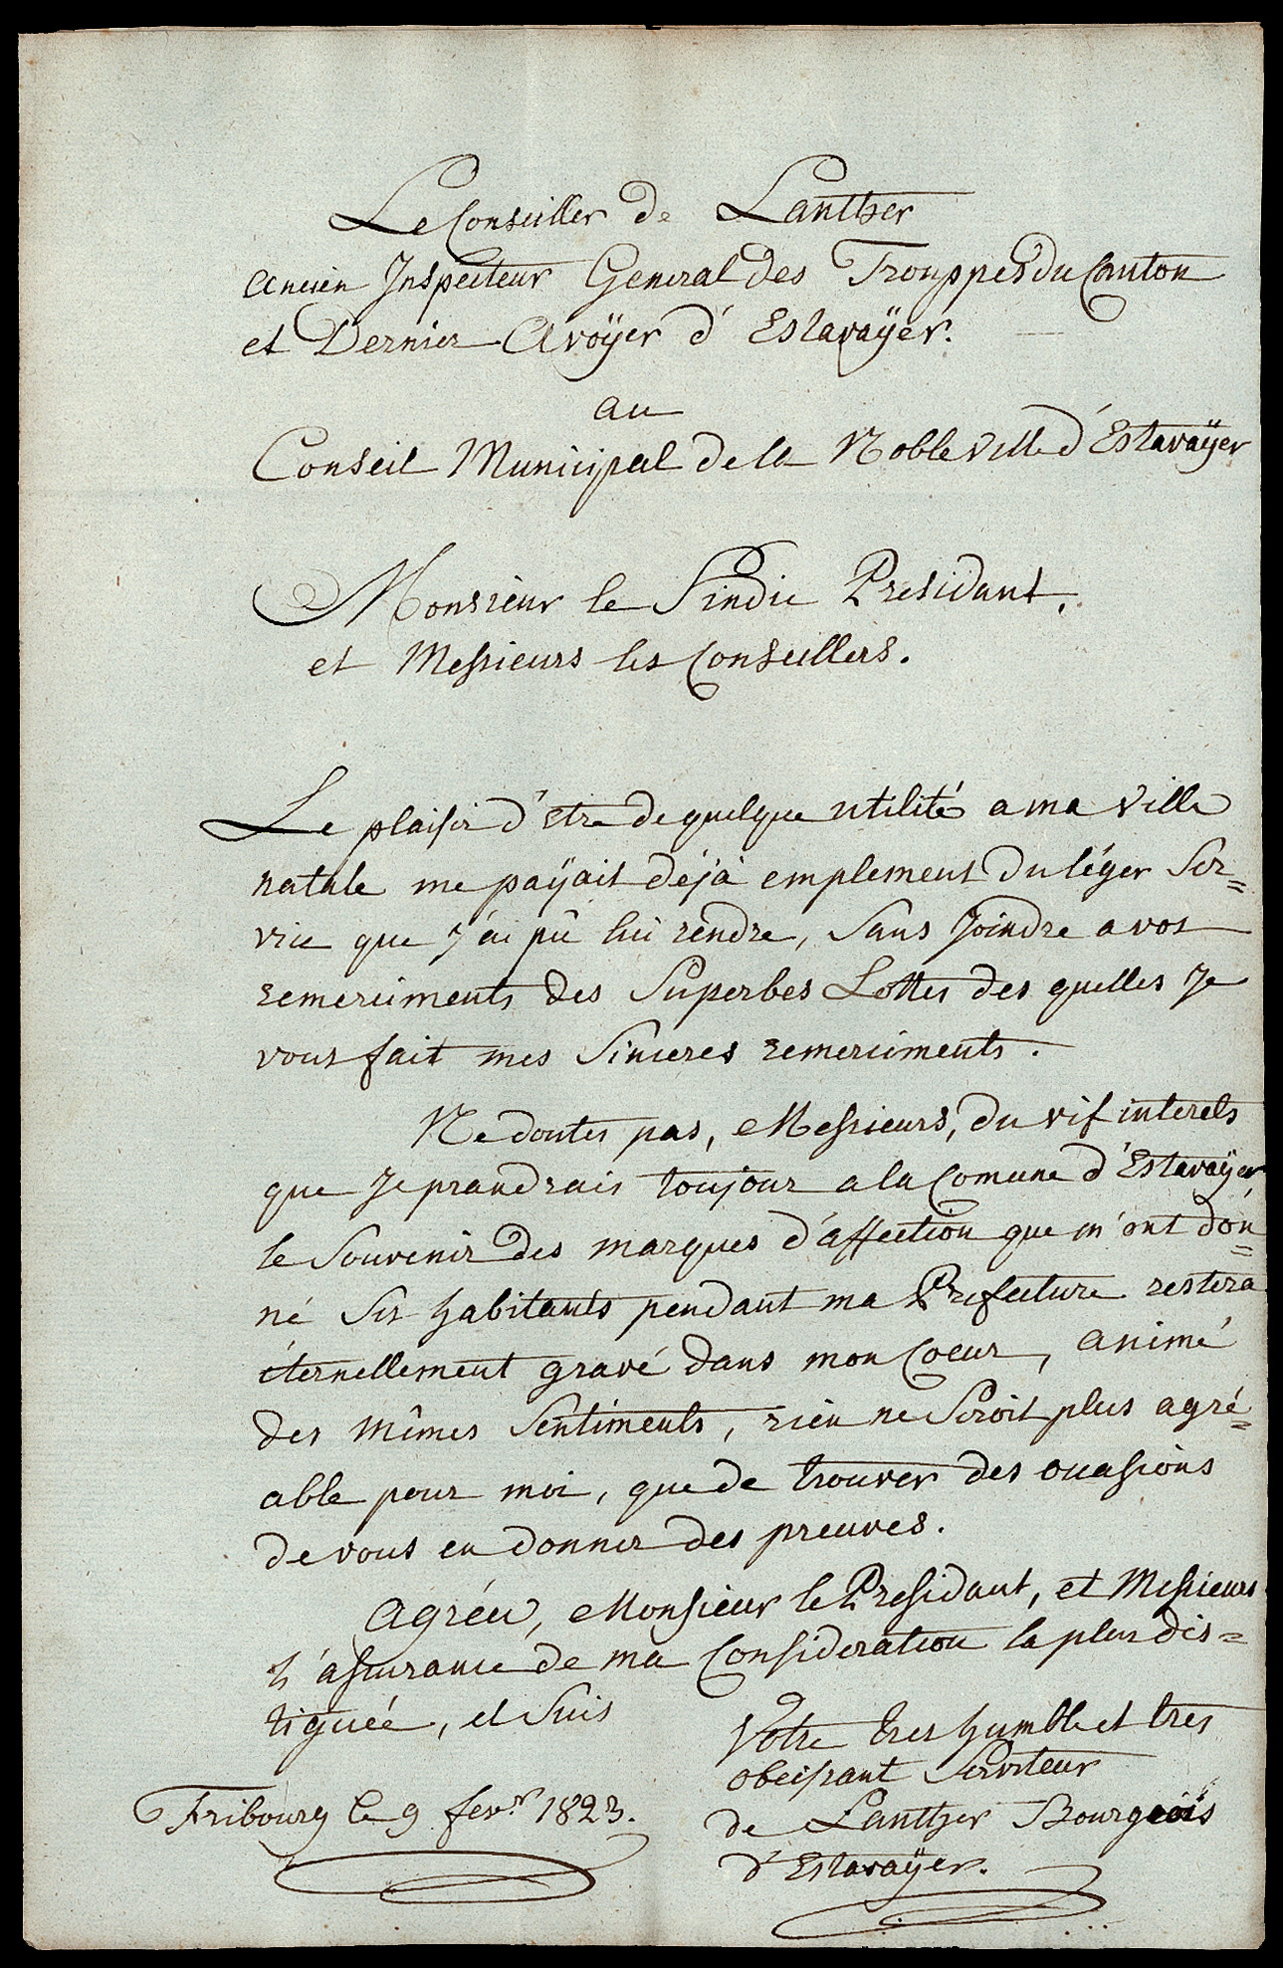 Le Conseiller de Lanther
ancien Inspecteur General des Trouppes du Canton
et Dernier Avoÿer d'Estavaÿer.
au
Conseil Municipal de la Noble Ville d'Estavaÿer
Monsieur le Sindic Presidant,
et Messieurs les Conseillers.
Le plaisir d'etre de quelque utilité a ma Ville
natale me paÿait déjà emplement du léger Ser=
vice que J'ai pû lui rendre, Sans Joindre a vos
remerciments des Superbes Lottes des quelles Je
vous fait mes Sinceres remerciments.
Ne doutes pas, Messieurs, du vif interets
que Je prandrais toujour a la Comune d'Estavaÿer
le Souvenir des marques d'affection que m'ont don=
né Ses habitants pendant ma Prefecture restera
éternellement gravé dans mon Coeur, animé
des mêmes Sentiments, rien ne Seroit plus agré=
able pour moi, que de trouver des occasions
de vous en donner des preuves.
Agréez, Monsieur le Presidant, et Messieurs
L'assurance de ma Consideration la plus dis=
tiguéé, et Suis
Votre tres humble et tres
obeissant Serviteur
de Lanther Bourgeois
d'Estavaÿer.
Fribourg le 9 fevr. 1823.